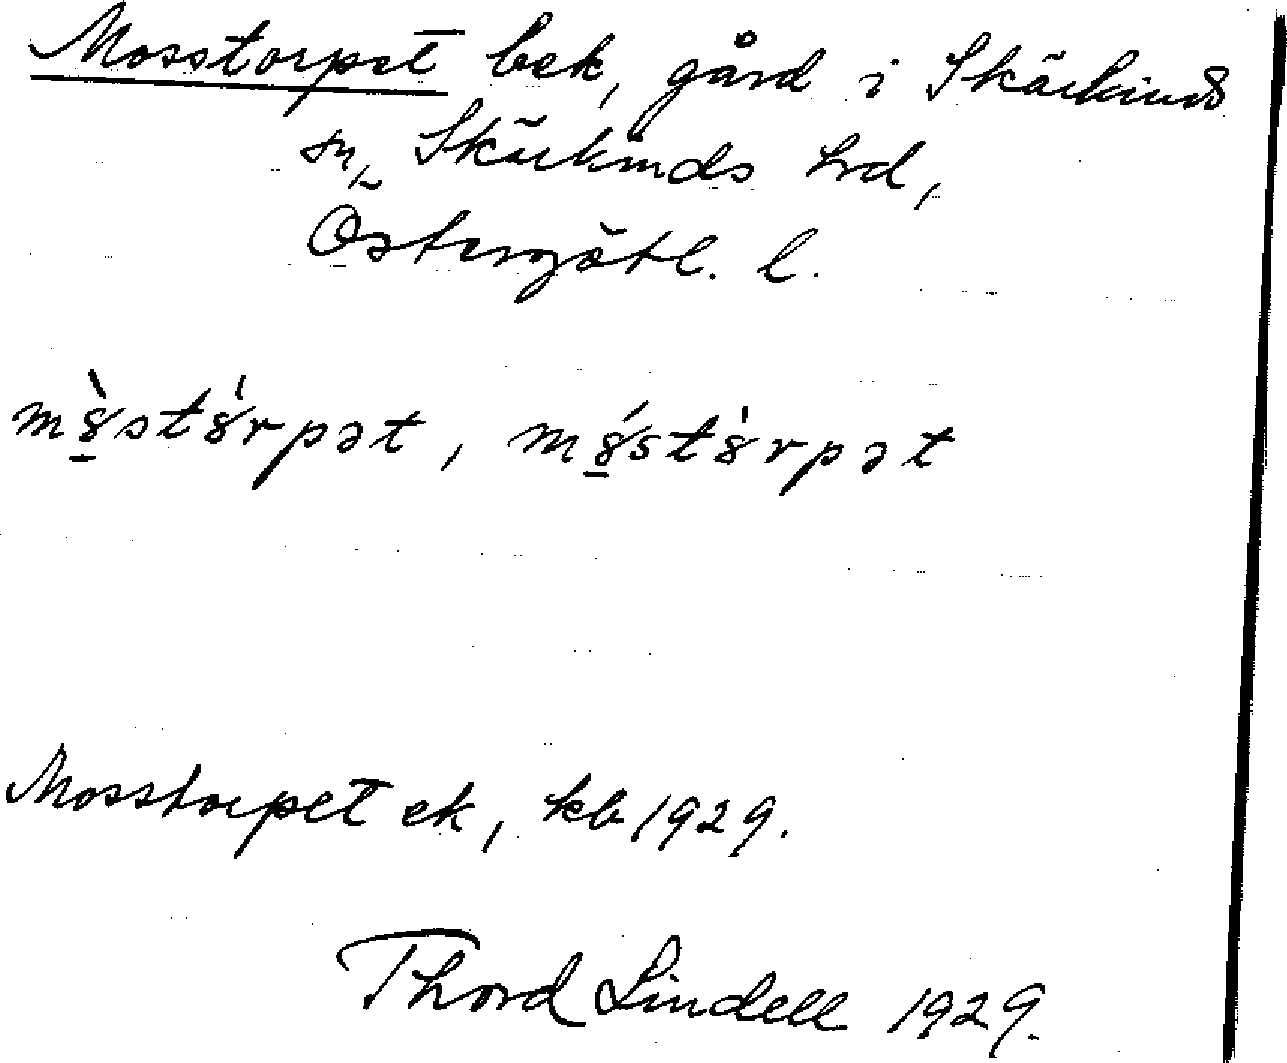 Mosstorpet bek, gård i Skärkinds
sn, Skärkinds hrd,
Östergötl. l.
mȣ̀stȣ́rpət, mȣ́stȣ̀rpət
Mosstorpet ek, kb 1929.
Thord Lindell 1929.